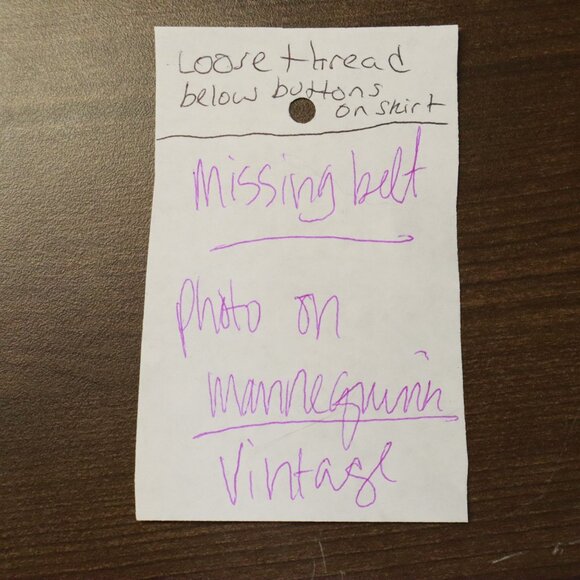 Loose thread
below buttons
on skirt
missing belt
photo on
mannequin
Vintage